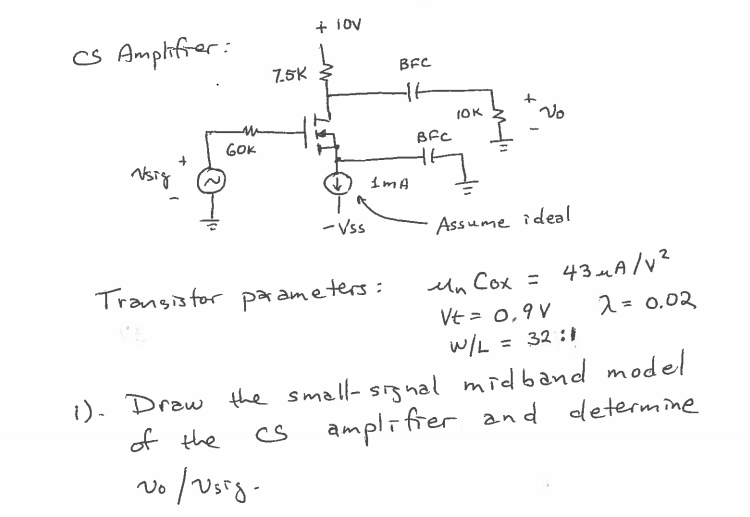 + 10V
CS Amplifier:
7.5K
BFC
10K
+
vo
-
60K
BFC
vsig
+
-
1mA
-Vss
Assume ideal
Transistor parameters: μn Cox = 43 μA/V²
Vt = 0.9V λ = 0.02
W/L = 32:1
1). Draw the small-signal midband model
of the CS amplifier and determine
vo/vsig.